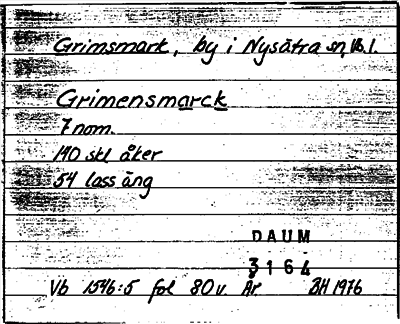 Grimsmark, by i Nysätra sn, Vb l.
Grimensmarck
7 nom.
140 skl åker
54 lass äng
DAUM
3164
Vb 1546:5 fol 80 v. År. BH 1976